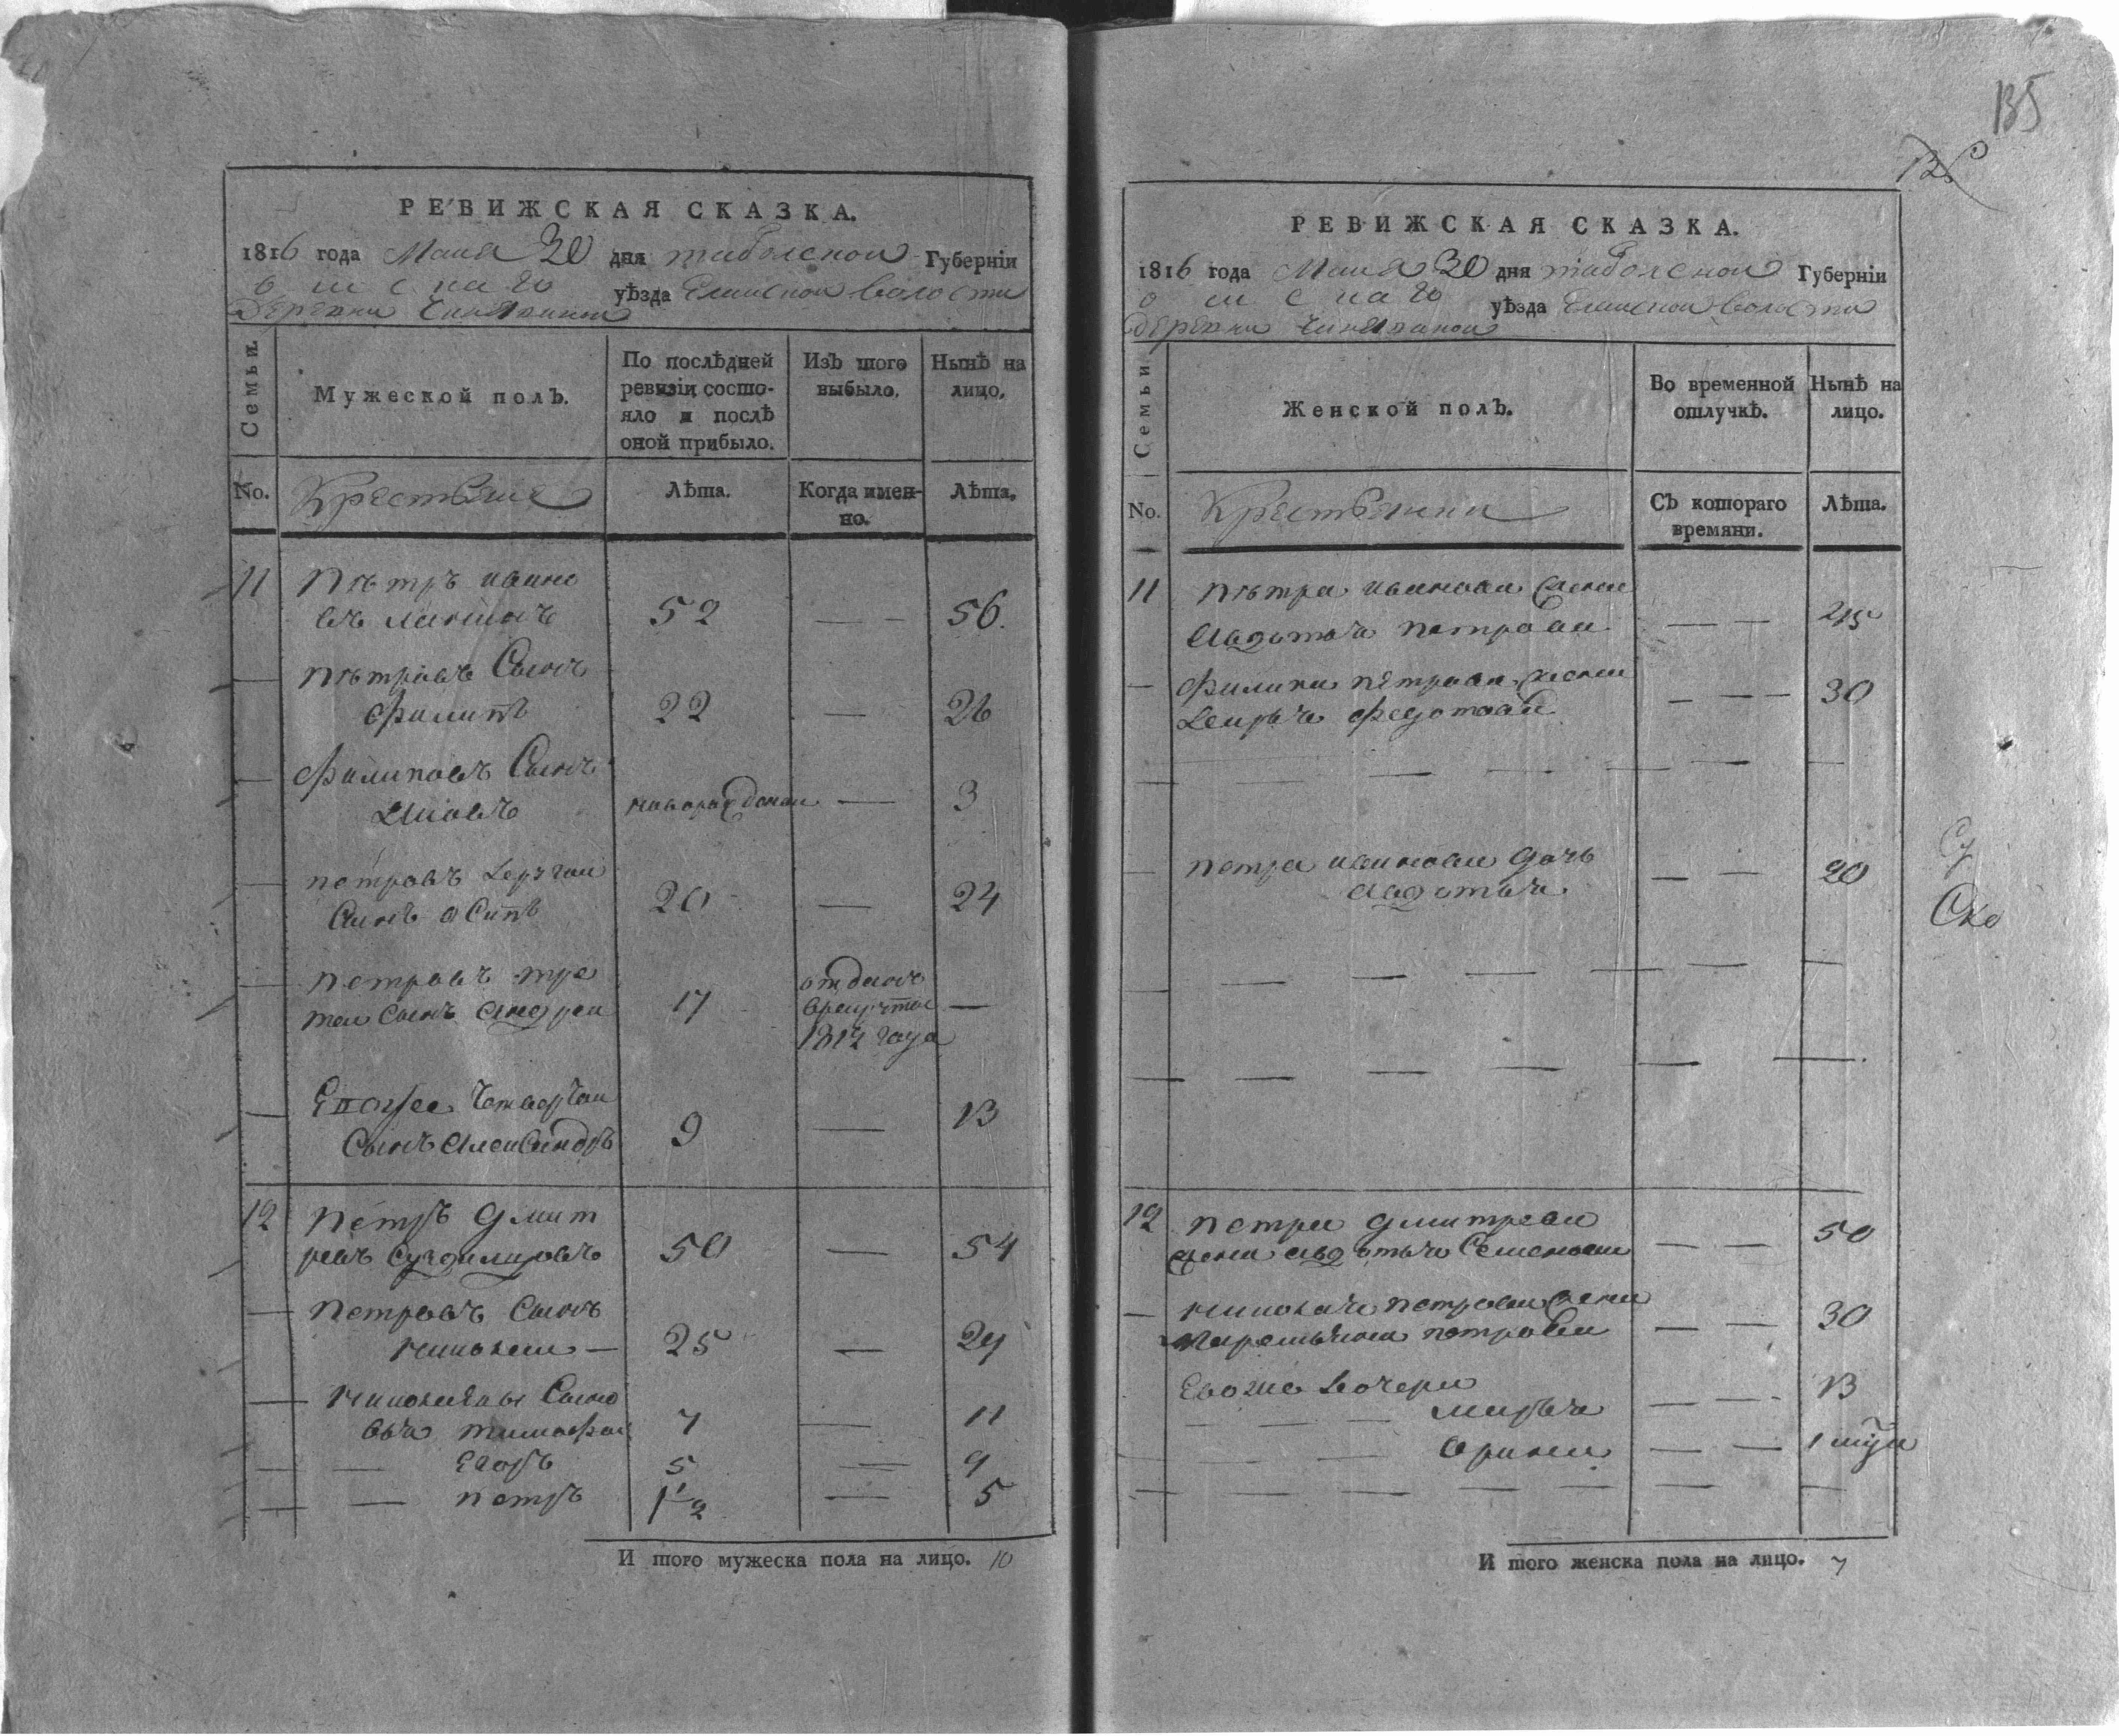 135
РЕВИЖСКАЯ СКАЗКА.
1816 года Маия 30 дня таболской Губерніи
омскаго уѣзда Еланской волости
деревни
Семьи.
Мужеской полъ.
По послѣдней ревизіи состояло и послѣ оной прибыло.
Изъ того выбыло.
Нынѣ на лицо.
No.
Крестьяне
Лѣта.
Когда именно.
Лѣта.
11 Пѣтръ ивано
въ 52 — — 56.
— пѣтровъ Сынъ
Филипъ 22 — 26
— Филиповъ Сынъ
новорожденои — 3
— петровъ другои
Сынъ осипъ 20 — 24
— петровъ тре
теи Сынъ андреи 17 отданъ врекруты 1812 года —
— Евожъ четвертои
Сынъ александръ 9 — 13
12 Петръ дмит
ревъ 50 — 54
— Петровъ Сынъ
николаи — 25 — 29
— николаявы Сыно
вья тимофеи 7 — 11
— — Егоръ 5 — 9
— — петръ 1 1/2 — 5
И того мужеска пола на лицо. 10
РЕВИЖСКАЯ СКАЗКА.
1816 года Маия 30 дня таболской Губерніи
омскаго уѣзда Еланской волости
деревни
Семьи
Женской полъ.
Во временной отлучкѣ.
Нынѣ на лицо.
No.
Крестьянки
Съ котораго времяни.
Лѣта.
11 пѣтра иванова жена
авдотья петрова — — 45
— Филипа пѣтрова жена
дарья федотова — — 30
— петра иванова дочь
авдотья — — 20
12 петра дмитрева
жена авдотья Семенова — — 50
— николая петрова жена
петрова — — 30
Евоже дочери
марья — — 13
орина — — 1
И того женска пола на лицо. 7